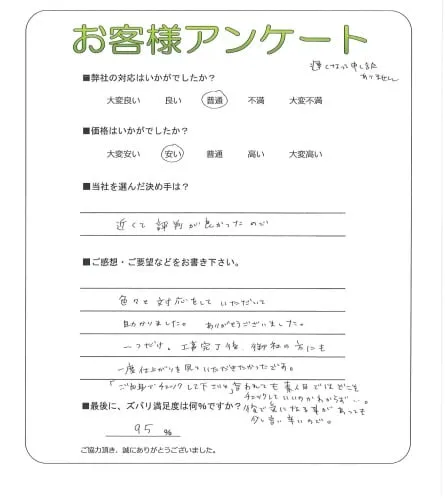 お客様アンケート
遅くなって申し訳
ありません
■弊社の対応はいかがでしたか?
大変良い 良い 普通 不満 大変不満
■価格はいかがでしたか?
大変安い 安い 普通 高い 大変高い
■当社を選んだ決め手は?
近くて評判が良かったので
■ご感想・ご要望などをお書き下さい。
色々と対応をしていただいて
助かりました。ありがとうございました。
一つだけ、工事完了後、御社の方にも
一度仕上がりを見ていただきたかったです。
「ご自身でチェックして下さい」と言われても素人目ではどこを
チェックしていいのかわからず…。
後で気になる事があっても
少し言い辛いので。
■最後に、ズバリ満足度は何%ですか?
95 %
ご協力頂き、誠にありがとうございました。